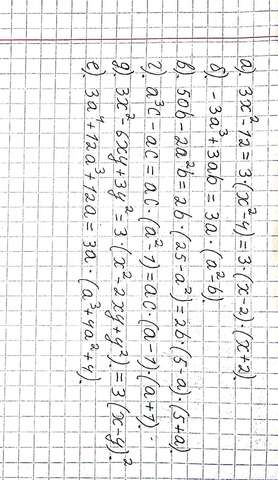 а). 3x²-12=3(x²-4)=3·(x-2)·(x+2).
б). -3a³+3ab=3a·(a²-b).
в). 50b-2a²b=2b·(25-a²)=2b·(5-a)·(5+a).
г). a³c-ac=ac·(a²-1)=ac·(a-1)·(a+1).
д). 3x²-6xy+3y²=3·(x²-2xy+y²)=3(x-y)².
е). 3a⁴+12a³+12a=3a·(a³+4a²+4).